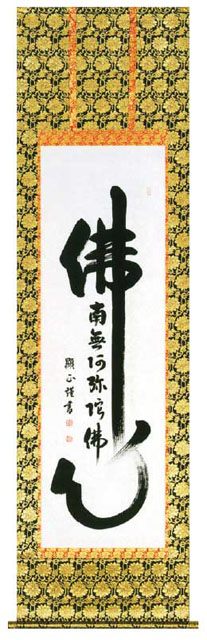 佛心
南無阿弥陀佛
顕正謹書